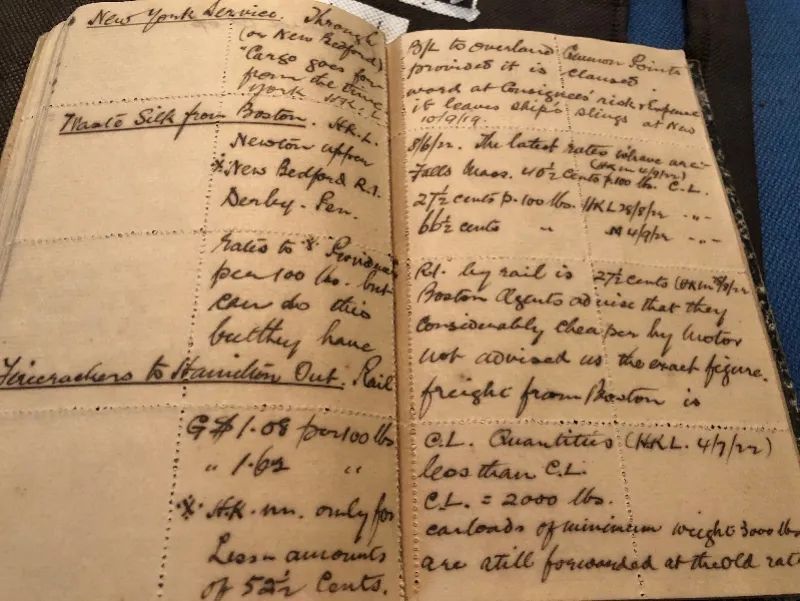 New York Service. Through B/L to Overland Common Points
(or New Bedford) provided it is claused
"Cargo goes for ward at Consignees' risk & Expense
from the time it leaves ship's slings at New
York H.K.L. 10/9/19.
Waste Silk from Boston. H.K.L. 8/6/22. The latest rates are:-
Newton upper Falls Mass. 40½ cents p. 100 lbs. C.L.
※ New Bedford R.I. 27½ cents p. 100 lbs. HKL 28/8/22 - " -
Derby. Pen. 66½ cents " 4/9/22 - " -
rates to ※ Providence R.I. by rail is 27½ cents
per 100 lbs. but Boston Agents advise that they
can do this considerably cheaper by Motor
but they have not advised us the exact figure.
Firecrackers to Hamilton Ont. Rail freight from Boston is
G$1.08 per 100 lbs C.L. Quantities (HKL. 4/7/22)
" 1.62 " less than C.L.
※ H.K. only for C.L. = 2000 lbs.
Less amounts carloads of minimum weight 3000 lbs
of 52½ Cents. are still forwarded at the old rate